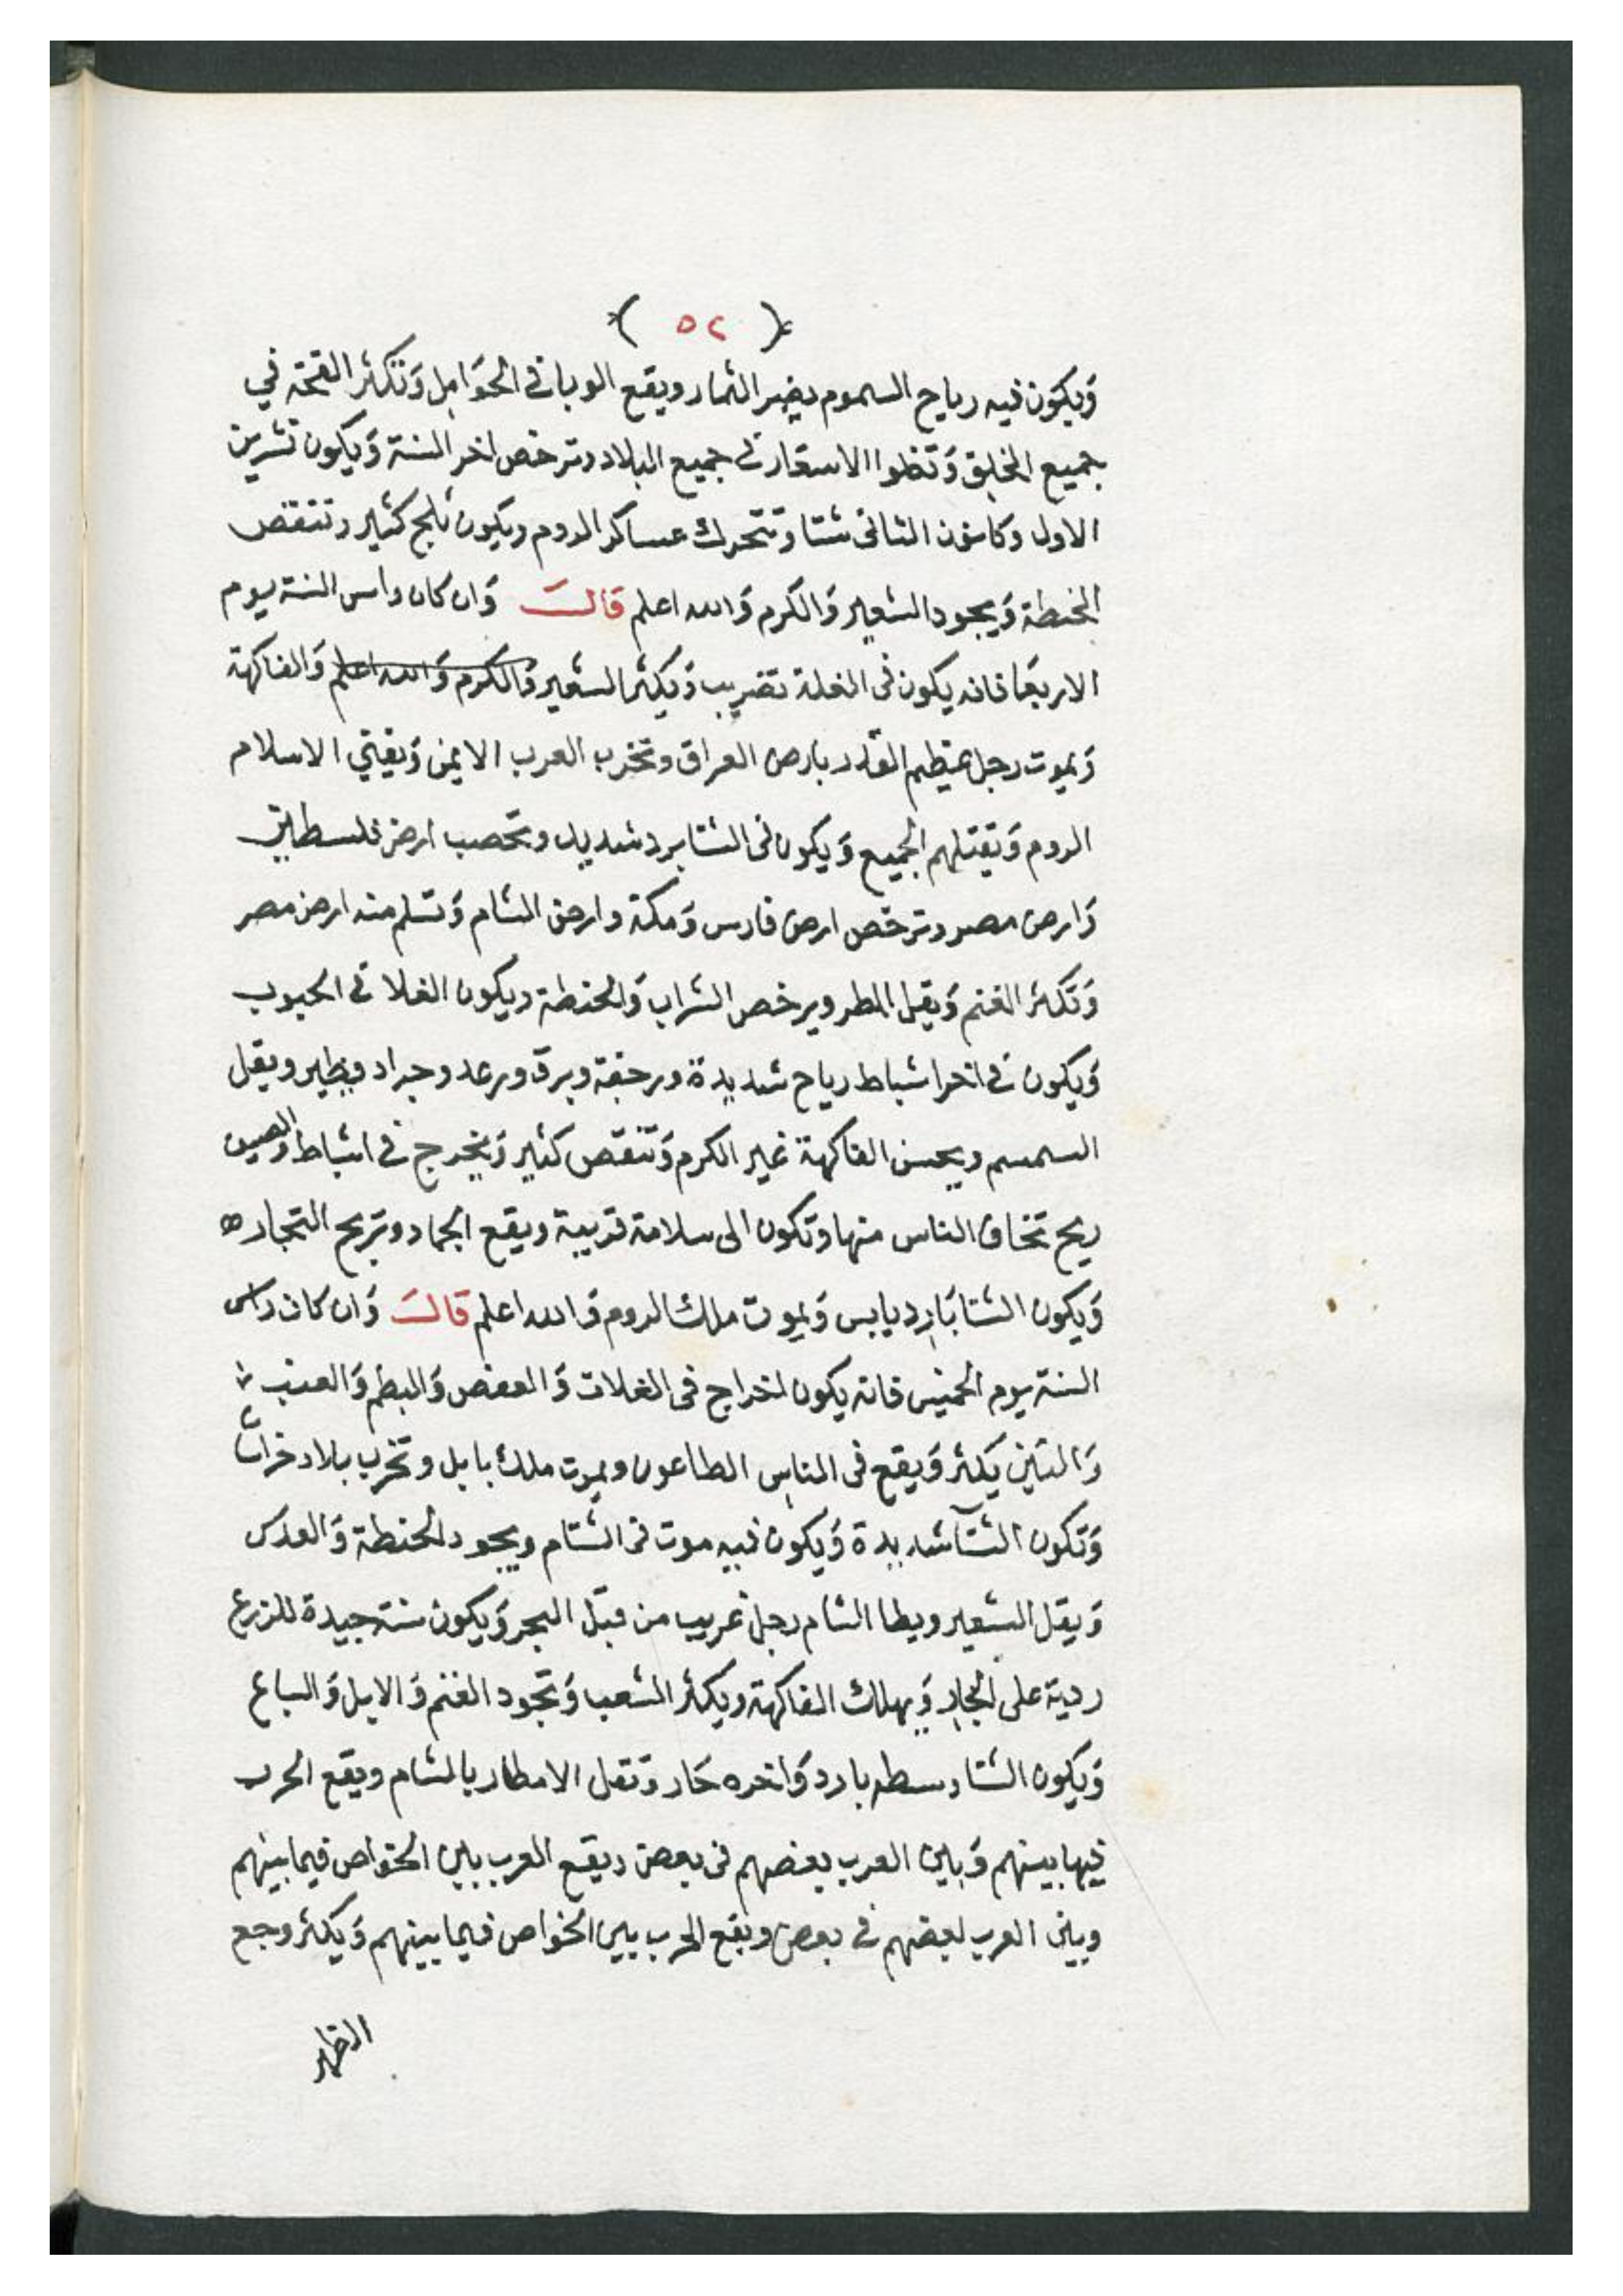 ( ٥٢ )
وَيكَون فيه رياح السموم يضر الثمار ويقع الوبا في الحوَامل وَتكثر القحة في
جميع الخلق وَتغلوا الاسعار في جميع البلاد وترخص اخر السنة وَيكون تشرين
الاول وكانون الثاني شتا وتتحرك عساكر الروم ويكون ثلج كثير وتنقص
الحنطة وَيجود الشعير وَالكرم وَالله اعلم قالــَ وَان كان راس السنة يوم
الاربعَا فانه يكون فى الغلة تضريب وَيكثر الشعير وَالكرم وَالله اعلم وَالفاكهة
وَيموت رجل عظيم القدر بارض العراق وتخرب العرب الايمن وَيفتي الاسلام
الروم وَيقتلهم الجميع وَيكون فى الشتا برد شديد وتخصب ارض فلسطين
وَارض مصر وترخص ارض فارس وَمكة وارض الشام وَتسلم منه ارض مصر
وَتكثر الغنم وَيقل المطر ويرخص الشراب وَالحنطة ويكون الغلا في الحبوب
وَيكون في اخر اشباط رياح شديدة ورجفة وبرق ورعد وجراد ويطير ويقل
السمسم ويحسن الفاكهة غير الكرم وَتنقص كثير وَيخرج في اشباط والصين
ريح تخاف الناس منها وتكون الى سلامة قريبة ويقع الجماد وتربح التجاره
وَيكون الشتا بَارد يابس وَيموت ملك الروم وَالله اعلم قالــَ وَان كان راس
السنة يوم الخميس فانه يكون اخراج فى الغلات وَالعفص وَالبطم وَالعنب
وَالتين يكثر وَيقع فى الناس الطاعون ويموت ملك بابل وتخرب بلاد خراسان
وَتكون الشتآ شديدة وَيكون فيه موت فى الشام ويجود الحنطة وَالعدس
وَيقل الشعير ويطا الشام رجل غريب من قبل البحر وَيكون سنة جيدة للزرع
ردية على التجار وَيهلك الفاكهة ويكثر الشعب وَتجود الغنم وَالابل وَالسباع
وَيكون الشتا وسطه بارد وَاخره حَار وَتقل الامطار بالشام ويقع الحرب
فيها بينهم وَبين العرب بعضهم فى بعض ويقع العرب بين الخواص فيما بينهم
وبين العرب لبعضهم في بعض ويقع الحرب بين الخواص فيما بينهم وَيكثر وجع
الظهر